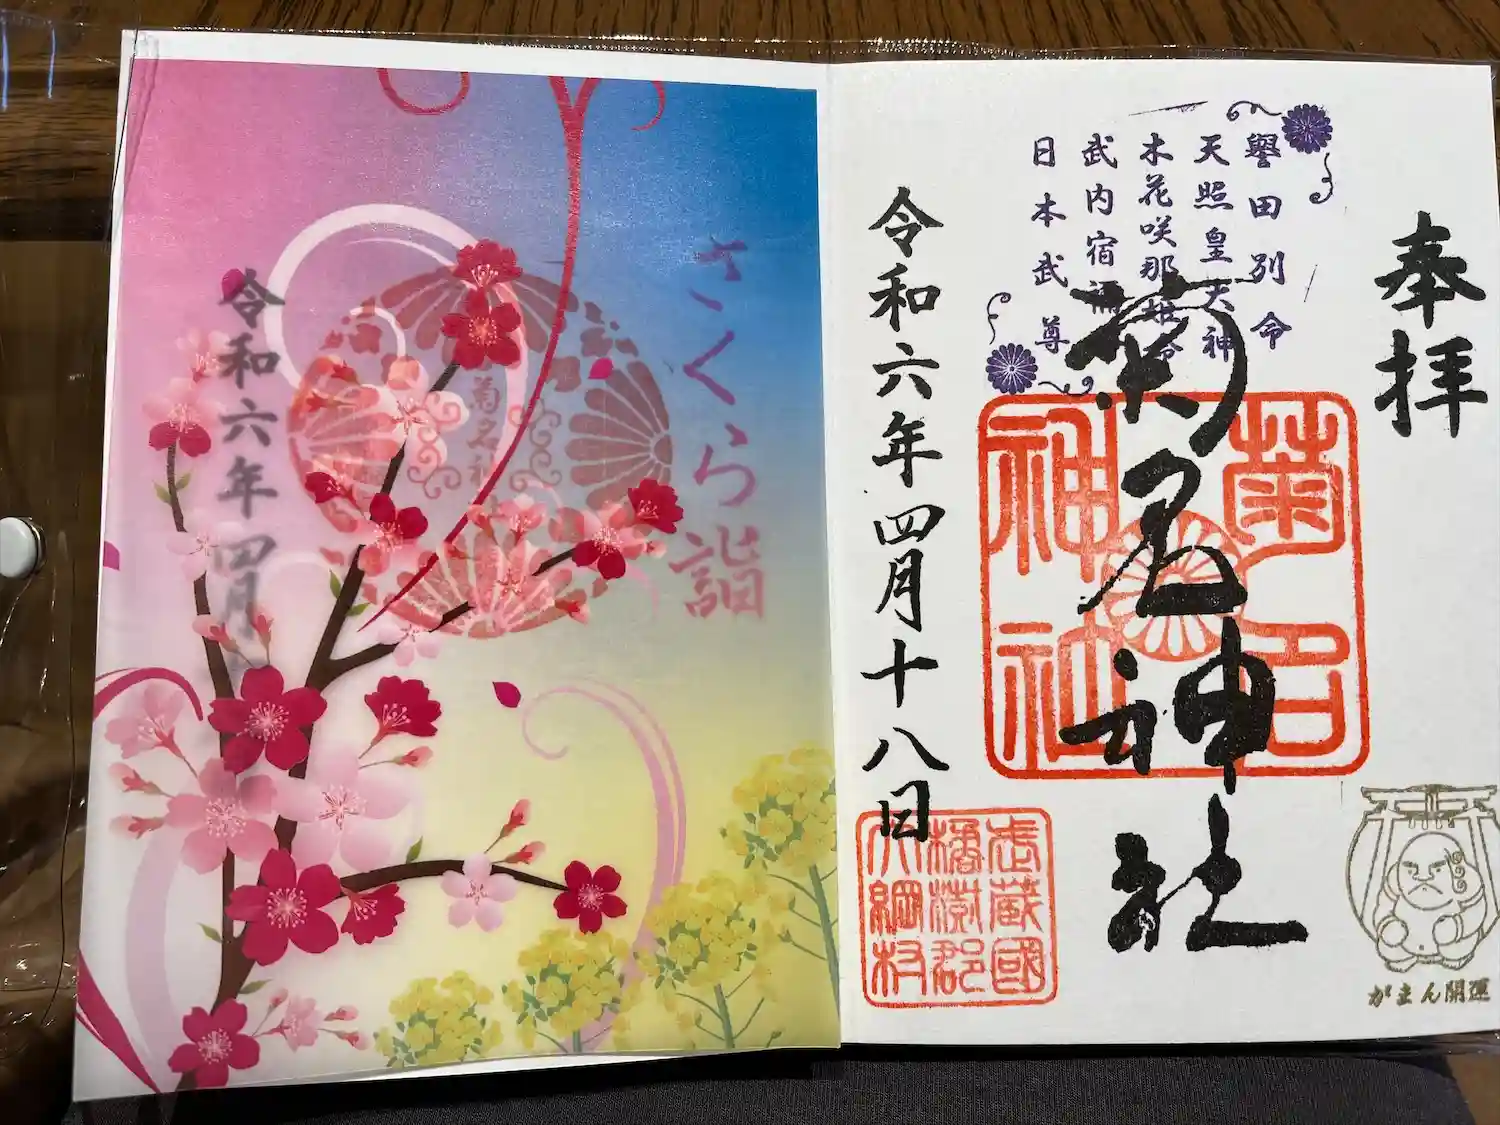 奉拝
譽田別命
天照皇大神
木花咲那姫命
武内宿禰
日本武尊
菊名神社
菊名
神社
令和六年四月十八日
武蔵國
橘樹郡
大綱村
がまん開運
さくら詣
菊名神社
令和六年四月